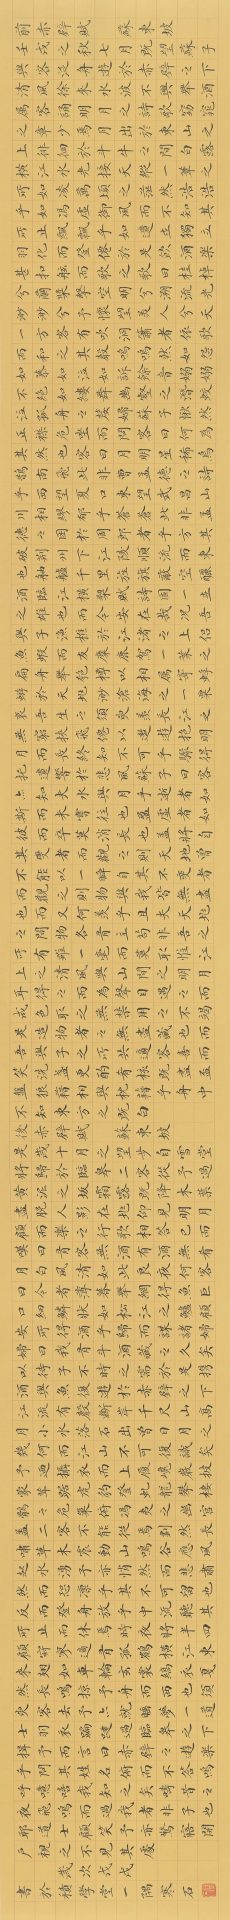 前赤壁賦 蘇東坡
壬戌之秋七月既望蘇子
與客泛舟遊於赤壁之下
清風徐來水波不興舉酒
屬客誦明月之詩歌窈窕
之章少焉月出於東山之
上徘徊於斗牛之間白露
橫江水光接天縱一葦之
所如凌萬頃之茫然浩浩
乎如馮虛御風而不知其
所止飄飄乎如遺世獨立
羽化而登仙於是飲酒樂
甚扣舷而歌之歌曰桂棹
兮蘭槳擊空明兮泝流光
渺渺兮予懷望美人兮天
一方客有吹洞簫者倚歌
而和之其聲嗚嗚然如怨
如慕如泣如訴餘音嫋嫋
不絕如縷舞幽壑之潛蛟
泣孤舟之嫠婦蘇子愀然
正襟危坐而問客曰何為
其然也客曰月明星稀烏
鵲南飛此非曹孟德之詩
乎西望夏口東望武昌山
川相繆鬱乎蒼蒼此非孟
德之困於周郎者乎方其
破荊州下江陵順流而東
也舳艫千里旌旗蔽空釃
酒臨江橫槊賦詩固一世
之雄也而今安在哉況吾
與子漁樵於江渚之上侶
魚蝦而友麋鹿駕一葉之
扁舟舉匏樽以相屬寄蜉
蝣於天地渺滄海之一粟
哀吾生之須臾羨長江之
無窮挾飛仙以遨遊抱明
月而長終知不可乎驟得
託遺響於悲風蘇子曰客
亦知夫水與月乎逝者如
斯而未嘗往也盈虛者如
彼而卒莫消長也蓋將自
其變者而觀之則天地曾
不能以一瞬自其不變者
而觀之則物與我皆無盡
也而又何羨乎且夫天地
之間物各有主苟非吾之
所有雖一毫而莫取惟江
上之清風與山間之明月
耳得之而為聲目遇之而
成色取之無禁用之不竭
是造物者之無盡藏也而
吾與子之所共適客喜而
笑洗盞更酌肴核既盡杯
盤狼籍相與枕藉乎舟中
不知東方之既白
後赤壁賦 蘇東坡
是歲十月之望步自雪堂
將歸於臨皋二客從予過
黃泥之坂霜露既降木葉
盡脫人影在地仰見明月
顧而樂之行歌相答已而
嘆曰有客無酒有酒無肴
月白風清如此良夜何客
曰今者薄暮舉網得魚巨
口細鱗狀如松江之鱸顧
安所得酒乎歸而謀諸婦
婦曰我有斗酒藏之久矣
以待子不時之需於是攜
酒與魚復遊於赤壁之下
江流有聲斷岸千尺山高
月小水落石出曾日月之
幾何而江山不可復識矣
予乃攝衣而上履巉巖披
蒙茸踞虎豹登虬龍攀棲
鶻之危巢俯馮夷之幽宮
蓋二客不能從焉劃然長
嘯草木震動山鳴谷應風
起水湧予亦悄然而悲肅
然而恐凜乎其不可留也
反而登舟放乎中流聽其
所止而休焉時夜將半四
顧寂寥適有孤鶴橫江東
來翅如車輪玄裳縞衣戛
然長鳴掠予舟而西也須
臾客去予亦就睡夢一道
士羽衣翩躚過臨皋之下
揖予而言曰赤壁之遊樂
乎問其姓名俛而不答嗚
呼噫嘻我知之矣疇昔之
夜飛鳴而過我者非子也
耶道士顧笑予亦驚寤開
戶視之不見其處